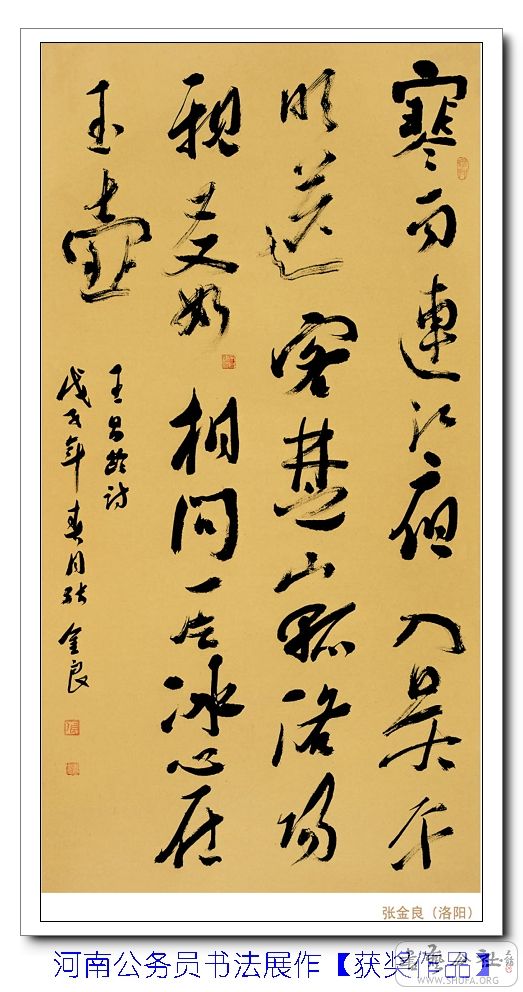 寒雨連江夜入吳平
明送客楚山孤洛陽
親友如相問一片冰心在
玉壺
王昌齡詩
戊子年春月張金良
张金良（洛阳）
河南公务员书法展作【获奖作品】
WWW.SHUFA.ORG